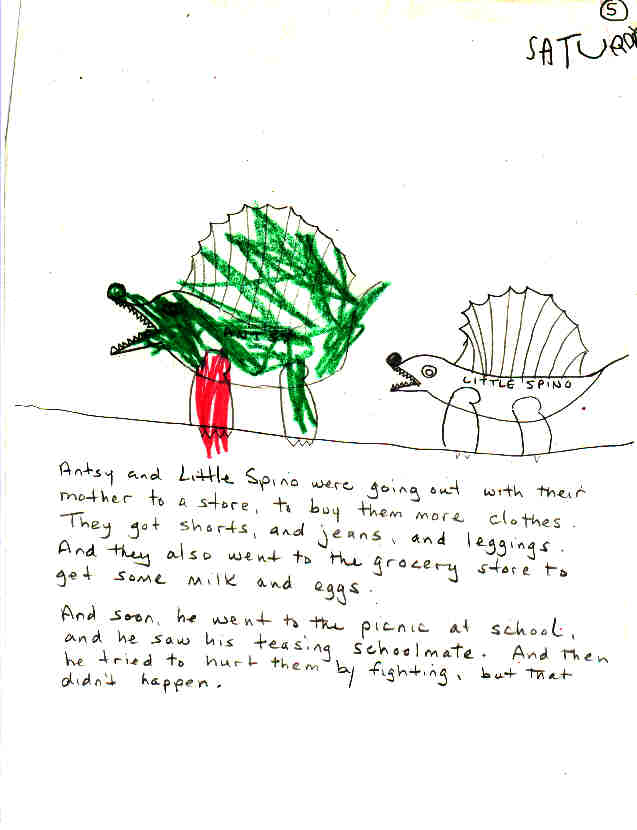 5
SATURDA
ANTSY
LITTLE SPINO
Antsy and Little Spino were going out with their
mother to a store, to buy them more clothes.
They got shorts, and jeans, and leggings.
And they also went to the grocery store to
get some milk and eggs.
And soon, he went to the picnic at school,
and he saw his teasing schoolmate. And then
he tried to hurt them by fighting, but that
didn't happen.